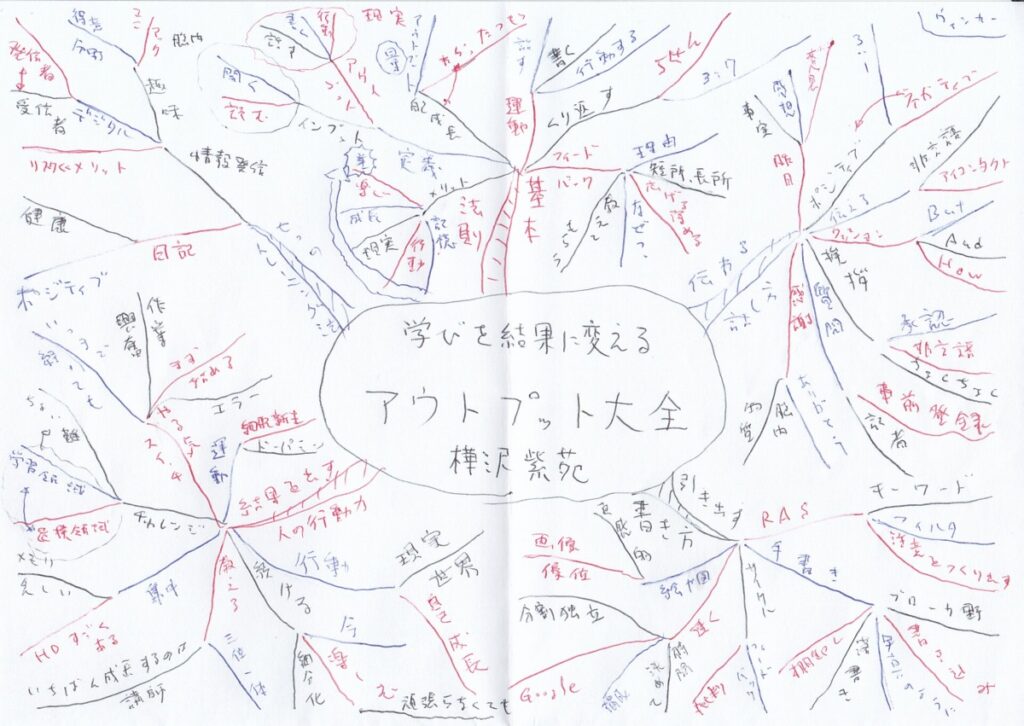 学びを結果に変える
アウトプット大全
樺沢紫苑
基本
法則
運動
話す
書く
行動する
くり返す
3:7
フィードバック
理由
短所、長所
広げる
深める
なぜ?
教えてもらう
自己成長
アウトプット
量
現実
インプット
聞く
読む
アウトプット
書く
話す
行動
定義
メリット
楽しい
成長
現実
行動
記憶
伝わる話し方
昨日
事実
感想
意見
ポジティブ
ネガティブ
伝える
非言語
アイコンタクト
クッション
But
And
How
挨拶
承認
非言語
ちょくちょく
質問
事前登録
記者
感謝
ありがとう
脳内物質
引き出す書き方
RAS
キーワード
フィルタ
注意とつくり出す
手書き
ブローカ野
書き込み
早送りのように
落書き
棚卸し
サイクル
フィードバック
速く
時間決め
Google
絵や図
分割独立
画像優位
効
結果を出す人の行動力
行動
現実世界
自己成長
続ける
今
楽しむ
頑張らなくても
細分化
教える
三位一体
いちばん成長するのは講師
集中
HDすごくある
メモリ
チャレンジ
ちょい
学習領域
危機領域
やる気スイッチ
いつまで経っても
興奮
作業
まず始める
エラー
運動
細胞新生
ドーパミン
七つのトレーニング法
日記
健康
ポジティブ
情報発信
リスク<メリット
デジタル
発信者
受信者
趣味
得意分野
マニアック
脳内